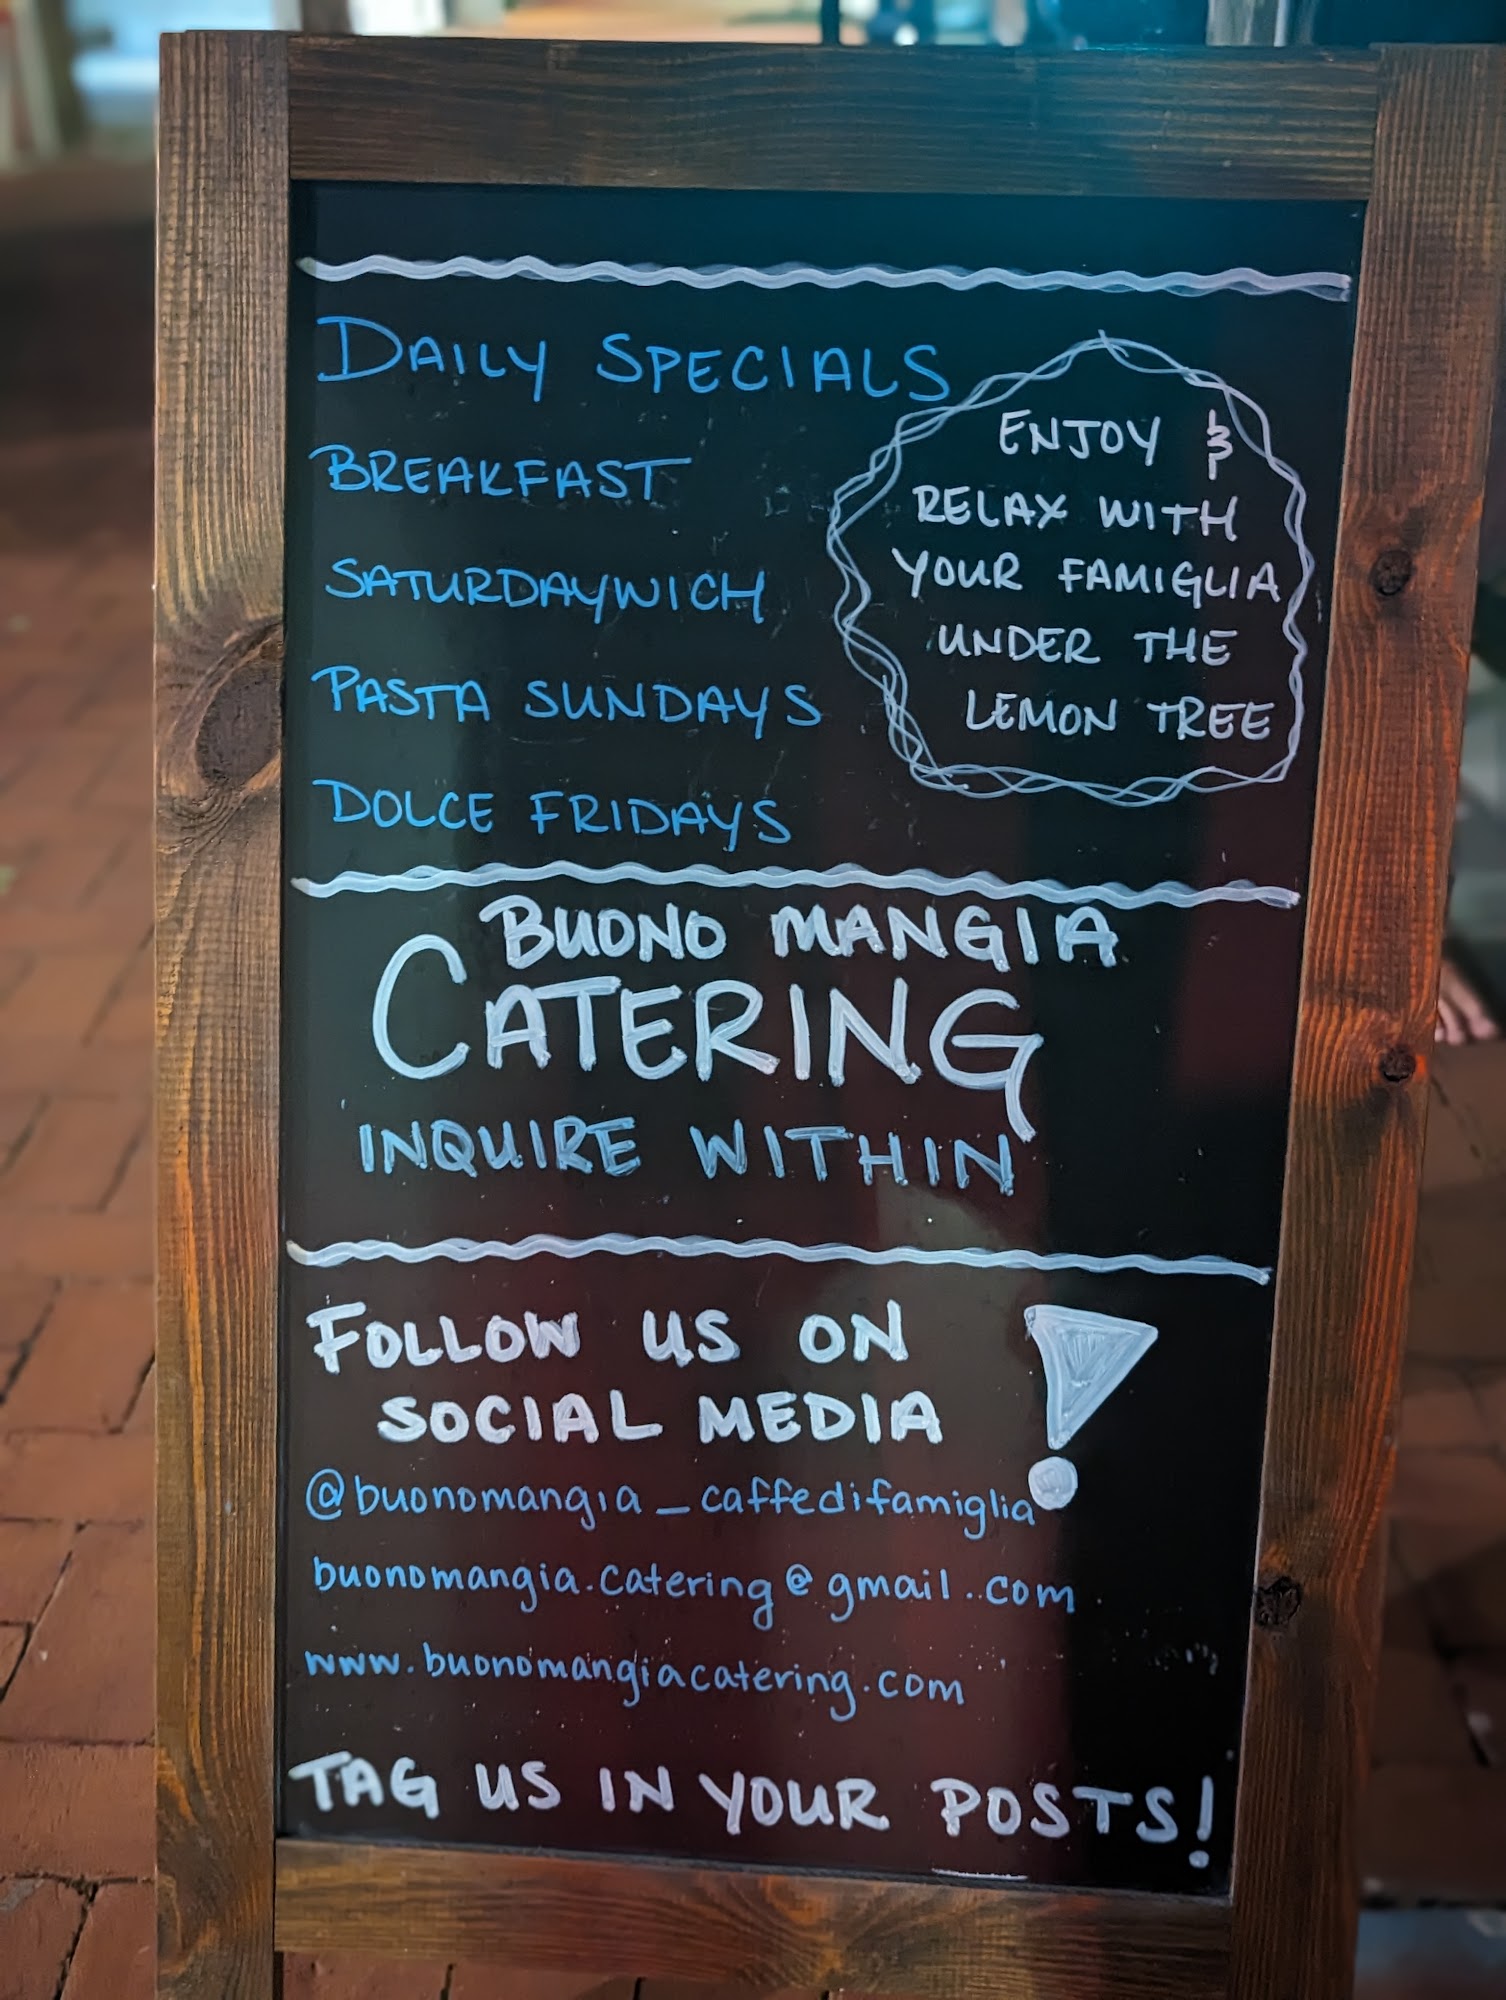 DAILY SPECIALS
BREAKFAST
SATURDAYWICH
PASTA SUNDAYS
DOLCE FRIDAYS
ENJOY &
RELAX WITH
YOUR FAMIGLIA
UNDER THE
LEMON TREE
BUONO MANGIA
CATERING
INQUIRE WITHIN
FOLLOW US ON
SOCIAL MEDIA!
@buonomangia_caffedifamiglia
buonomangia.catering@gmail..com
www.buonomangiacatering.com
TAG US IN YOUR POSTS!